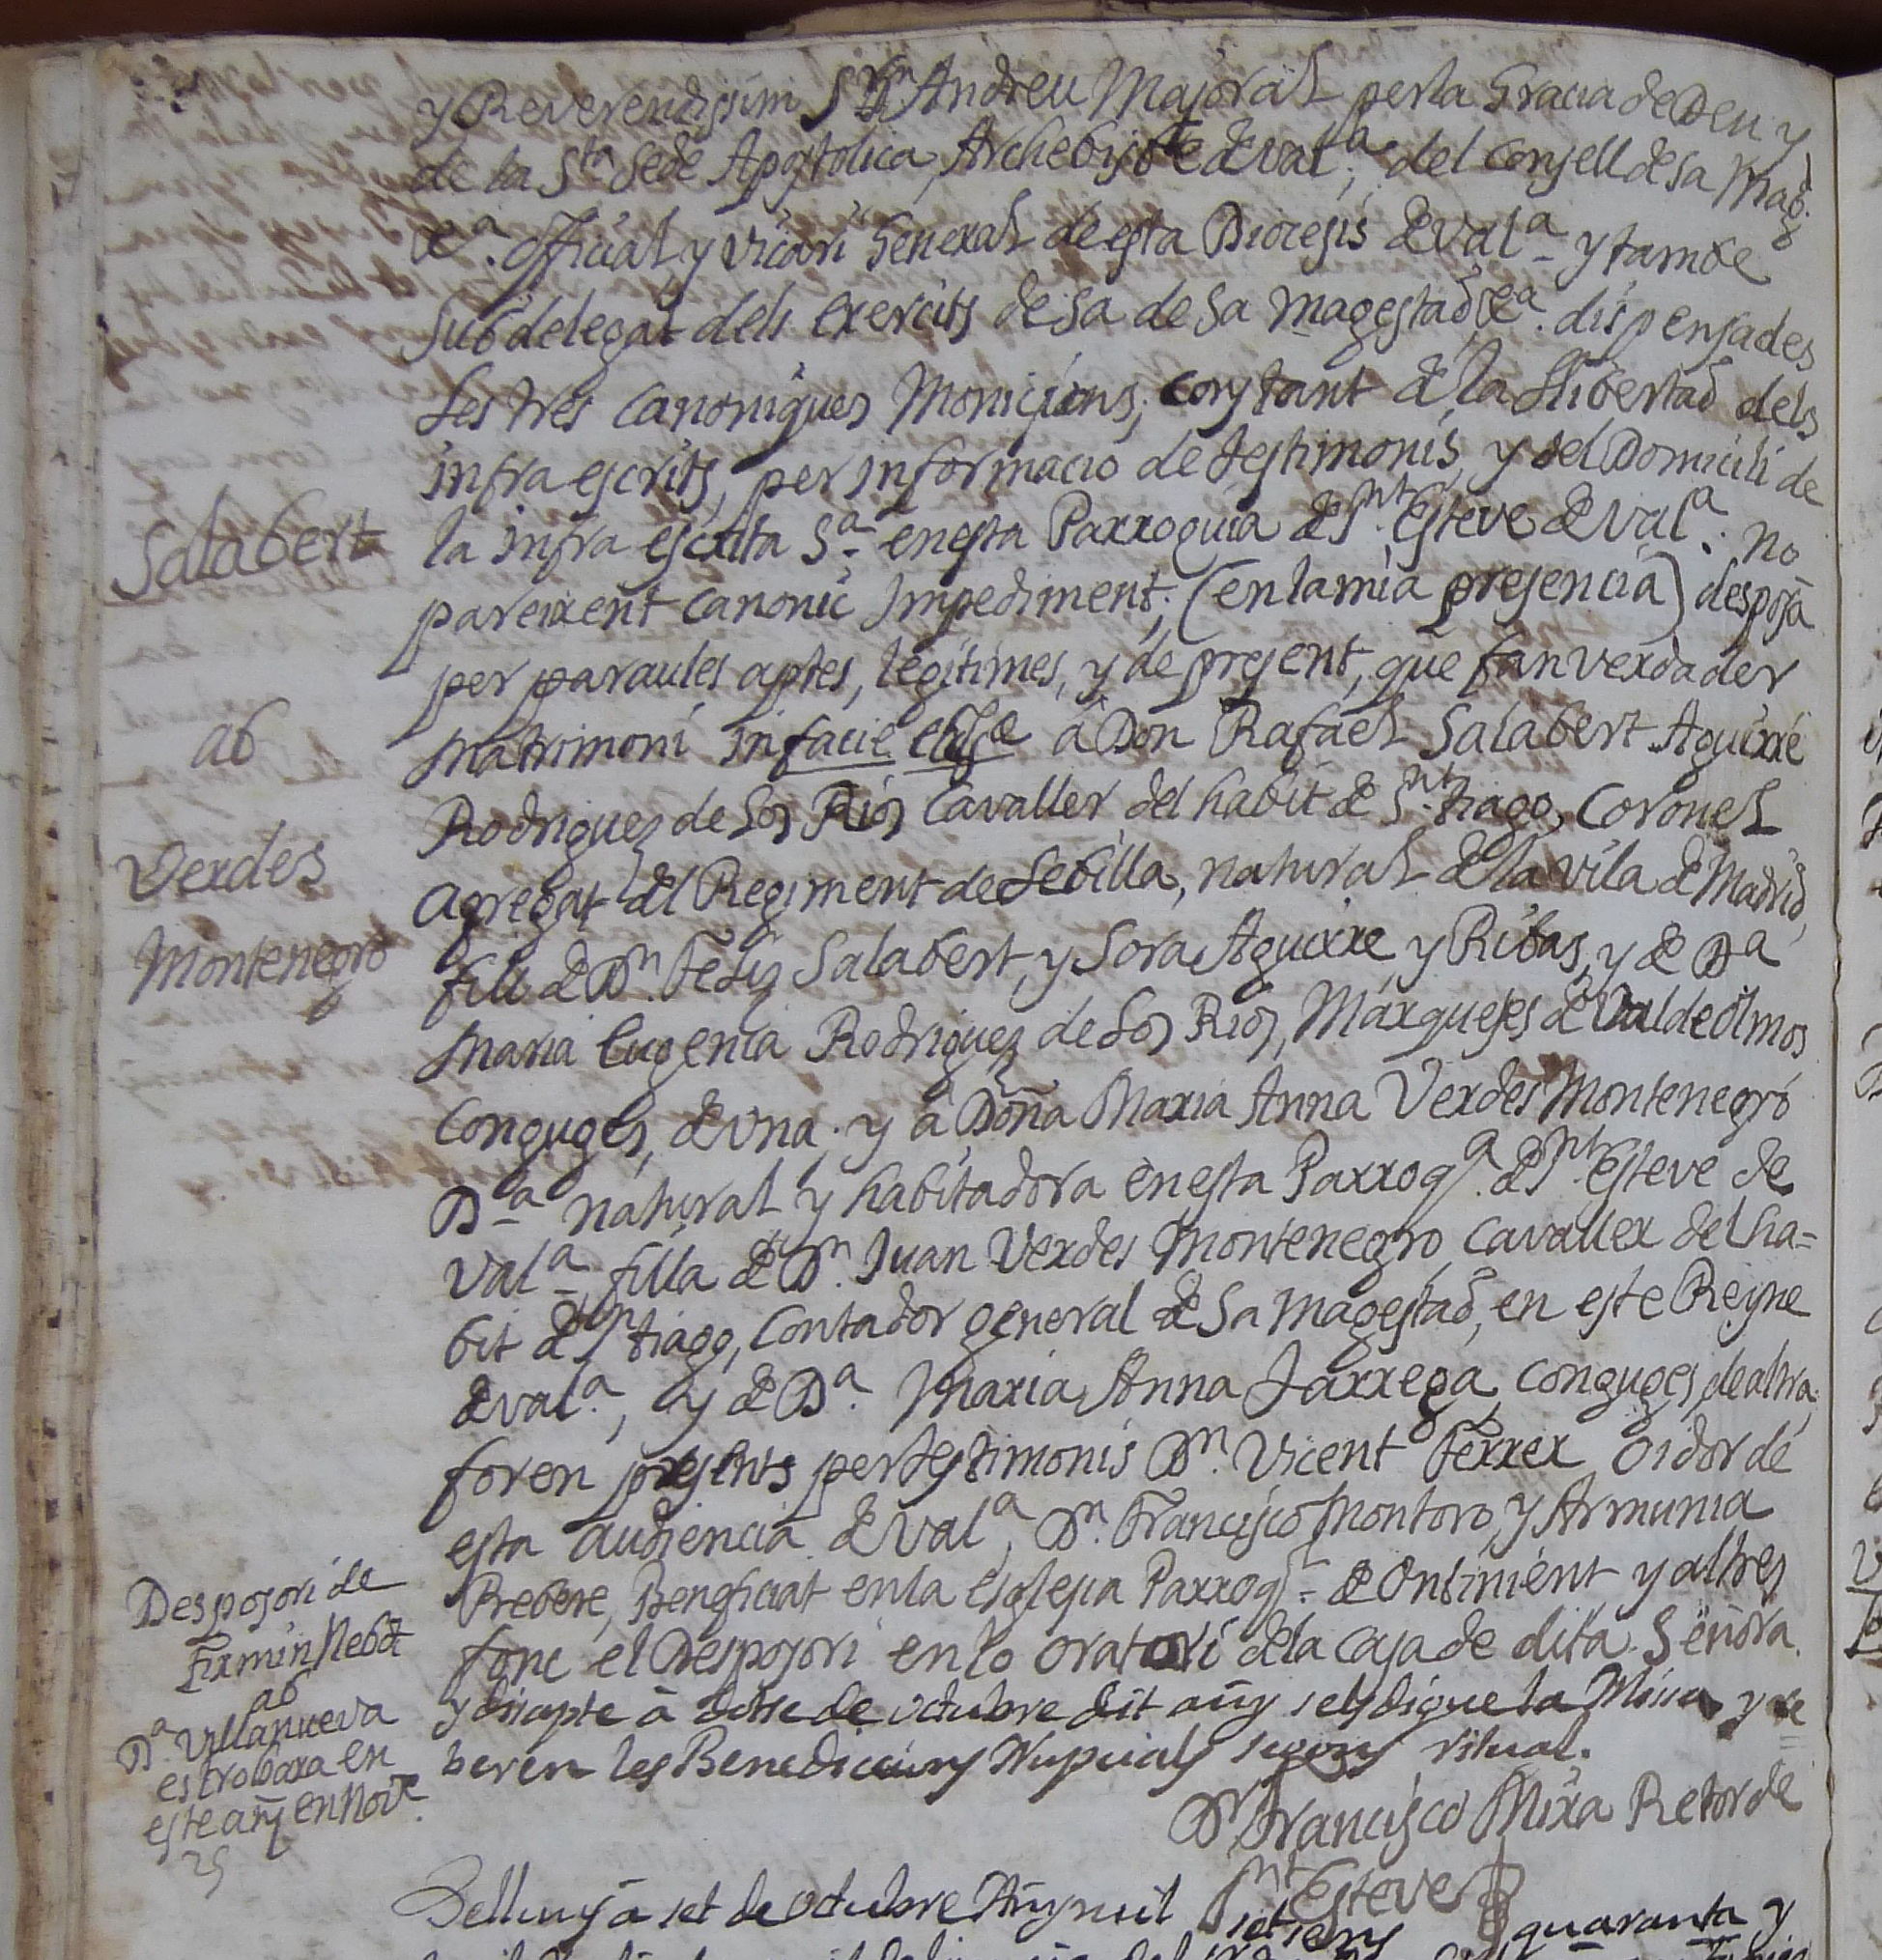 y Reverendissim Sr. Dn. Andreu Majoral per la Gracia de Deu y
de la Sta. Sede Apostolica, Archebisbe de Vala., del Consell de sa Mag.
&a. Official, y Vicari General de esta Diocesis de Vala. y tambe
Subdelegat dels exercits de sa de sa Magestad &a. dispensades
les tres canoniques Monicions, constant de la Llibertad dels
infra escrits, per informacio de testimonis, y del Domicili de
la infra escrita Sa. en esta Parroquia de Snt. Esteve de Vala. no
pareixent canonic Impediment; (en la mia presencia) desposà
per paraules aptes, legitimes, y de present, que fan verdader
Matrimoni in facie eclse à Don Rafael Salabert Aguirre
Rodriguez de los Rios Cavaller del habit de Snt. tiago, Coronel
agregat del Regiment de Sebilla, natural de la vila de Madrid,
fill de Dn. Feliz Salabert, y Sora Aguirre y Ribas, y de Da.
Maria Eugenia Rodriguez de los Rios, Marqueses de Valdeolmos
Conguges, de una; y à Doña Maria Anna Verdes Montenegro
Da. natural y habitadora en esta Parroqa. de Snt. Esteve de
Vala. filla de Dn. Juan Verdes Montenegro, Cavaller del ha=
bit de Snt. tiago, Contador general de Sa Magestad, en este Reyne
de Vala., y de Da. Maria Anna Jarrega, conguges, de altra;
foren presents per testimonis Dn. Vicent Ferrer Oidor de
esta Audiencia de Vala., Dn. Francisco Montoro y Armunia
Prebere, Beneficiat en la Esglesia Parroql. de Ontinient, y altres
fonc el Desposori en lo oratori de la casa de dita Señora.
y disapte à dotse de octubre dit añy sels digue la Missa, y re=
beren les Benediccions Nupcials segons ritual.
Dr. Francisco Mira Retor de
Snt. Esteve
Salabert
ab
Verdes
Montenegro
Desposori de
Firmin Nebot
ab
Da. Villanueva
es trobara en
este añy en Nove.
25
Dilluns à set de octubre Añy mil setsens quaranta y